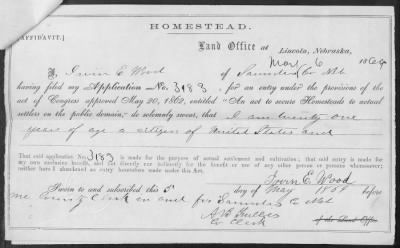 HOMESTEAD.
[AFFIDAVIT.]
Land Office at Lincoln, Nebraska,
May 6 1869
I, Irwin E Wood of Saunders Co Neb
having filed my Application No. 3183, for an entry under the provisions of the
act of Congress approved May 20, 1862, entitled "An act to secure Homesteads to actual
settlers on the public domain," do solemnly swear, that I am twenty one
years of age a citizen of United States and
That said application No. 3183 is made for the purpose of actual settlement and cultivation; that said entry is made for
my own exclusive benefit, and not directly nor indirectly for the benefit or use of any other person or persons whomsoever;
neither have I abandoned an entry heretofore made under this Act.
Irwin E. Wood
Sworn to and subscribed this 5 day of May 1869 before
me County Clerk in and for Saunders Co Neb
Co Clerk
of the Land Office